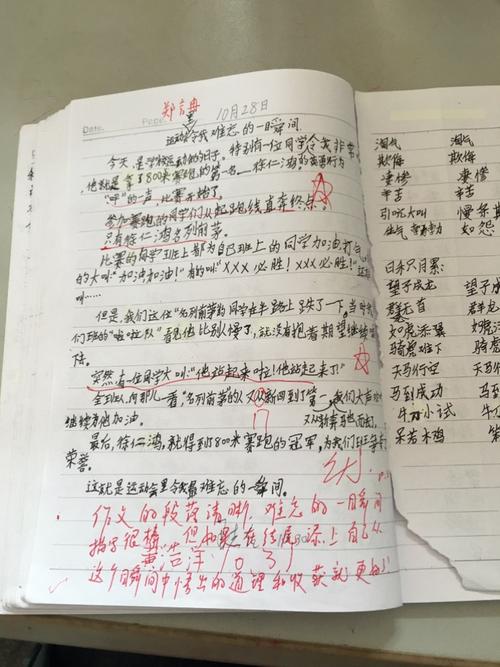 郑言冉
10月28日
Date.
Page.
运动里令我难忘的一瞬间.
今天,是学校运动的日子。特别有一位同学令我非常
他就是拿了800米赛跑的第一名——徐仁鸿的
"呼"的一声,比赛开始了。
参加赛跑的同学们从起跑线直奔终点。
只有徐仁鸿名列前茅。
比赛的同学班上都为自己班上的同学加油打
的大叫"加油加油!"有的叫"XXX必胜!XXX必胜!"
叫……
但是,我们这位"名列前茅"的同学在半路上跌了一下,当时
们班的"啦啦队"看见他比别慢了,就没有抱着期望继续
陆。
突然有一位同学大叫"他站起来啦!他站起来了!"
全班人向那儿一看"名列前茅"的人又从新回到了第一,我们大声
继续为他加油。
最后,徐仁鸿,就得到了800米赛跑的冠军,为我们班争
荣誉。
这就是运动会里令我最难忘的一瞬间。
作文的段落清晰,难忘的一瞬间
描写很棒,但如果在结尾添上自己从
黄浩洋 10号
这个瞬间中悟出的道理和收获就更
淘气 淘气
欺侮 欺侮
凄惨 凄惨
辛苦 辛苦
引吭大叫
日积月累:
望子成龙 望子成
群龙无首 群龙
如虎添翼 如虎
骑虎难下 骑虎
天马行空 天马行
马到成功 马到
牛刀小试 牛刀
呆若木鸡 呆若